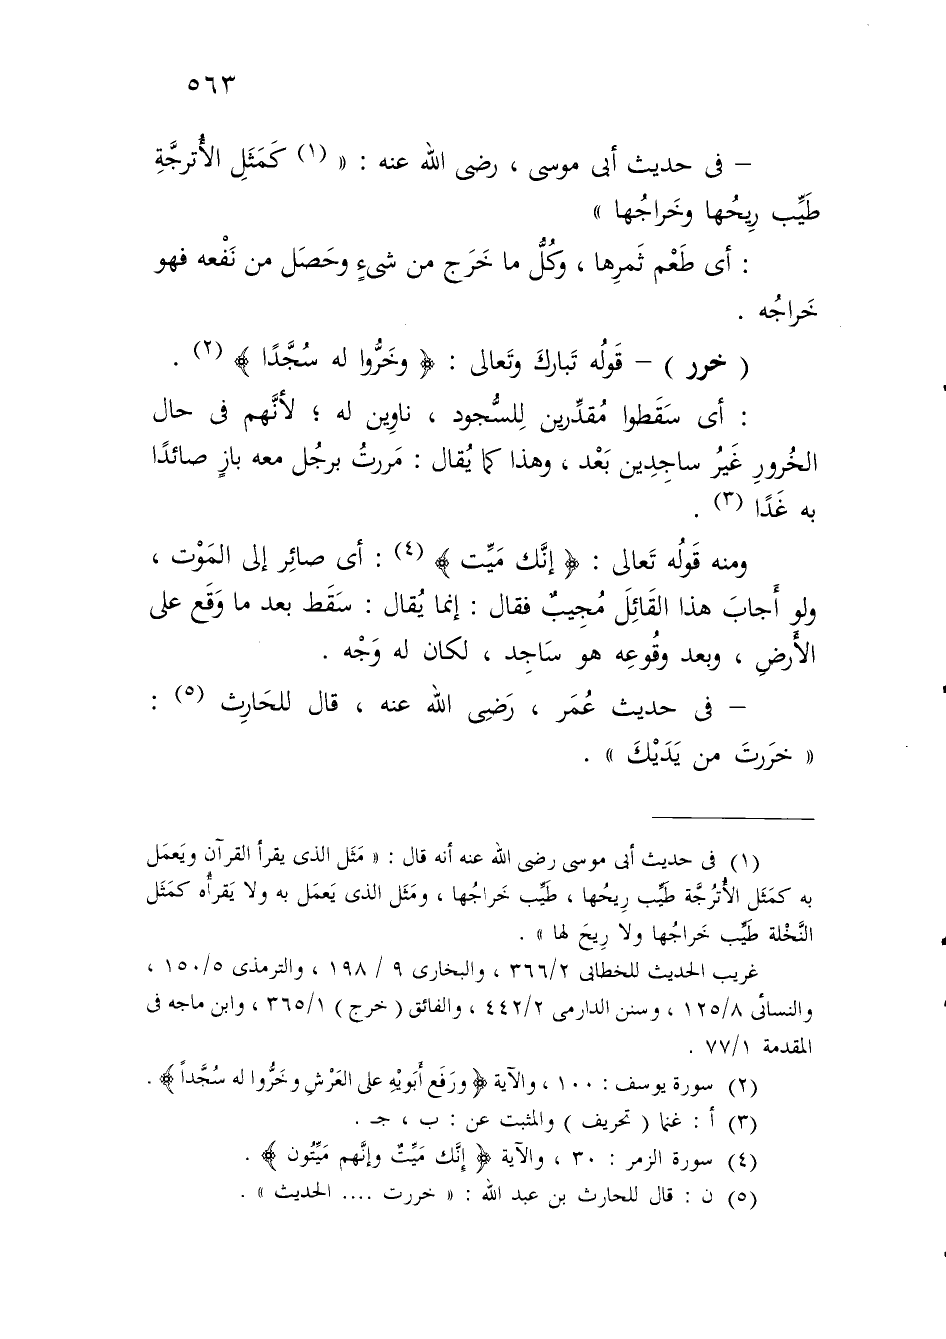 ٥٦٣
– فى حديث أبى موسى ، رضى الله عنه : « (١) كَمَثَلِ الأُترجَّةِ
طَيِّب رِيحُها وخَراجُها »
: أى طَعْم ثَمرِها ، وكُلُّ ما خَرَج من شىءٍ وحَصَل من نَفْعه فهو
خَراجُه .
( خرر ) – قَولُه تَبارك وتَعالى : ﴿ وخَرُّوا له سُجَّدًا ﴾ (٢) .
: أى سَقَطوا مُقدِّرين لِلسُّجود ، ناوِين له ؛ لأنَّهم فى حال
الخُرورِ غَيرُ ساجِدِين بَعْد ، وهذا كما يُقال : مَررتُ برجُل معه بازٍ صائدًا
به غَدًا (٣) .
ومنه قَولُه تَعالى : ﴿ إنَّك مَيِّت ﴾ (٤) : أى صائِر إلى المَوْت ،
ولو أَجابَ هذا القَائِلَ مُجِيبٌ فقال : إنما يُقال : سَقَط بعد ما وَقَع على
الأَرضِ ، وبعد وقُوعِه هو سَاجِد ، لكان له وَجْه .
– فى حديث عُمَر ، رَضِى الله عنه ، قال للحَارِث (٥) :
« خرَرتَ من يَدَيْكَ » .
(١) فى حديث أبى موسى رضى الله عنه أنه قال : « مَثَل الذى يقرأ القرآن ويَعمَل
به كمَثَل الأُترُجَّة طَيِّب رِيحُها ، طَيِّب خَراجُها ، ومَثَل الذى يَعمَل به ولا يَقرأُه كمَثَل
النَّخْلة طَيِّب خَراجُها ولا رِيحَ لها » .
غريب الحديث للخطابى ٣٦٦/٢ ، والبخارى ٩ / ١٩٨ ، والترمذى ١٥٠/٥ ،
والنسائى ١٢٥/٨ ، وسنن الدارمى ٤٤٢/٢ ، والفائق ( خرج ) ٣٦٥/١ ، وابن ماجه فى
المقدمة ٧٧/١ .
(٢) سورة يوسف : ١٠٠ ، والآية ﴿ ورَفَع أَبَويْهِ على العَرْشِ وخَرُّوا له سُجَّداً ﴾ .
(٣) أ : غنما ( تحريف ) والمثبت عن : ب ، جـ .
(٤) سورة الزمر : ٣٠ ، والآية ﴿ إِنَّك مَيِّتٌ وإنَّهم مَيِّتُون ﴾ .
(٥) ن : قال للحارث بن عبد الله : « خررت .... الحديث » .